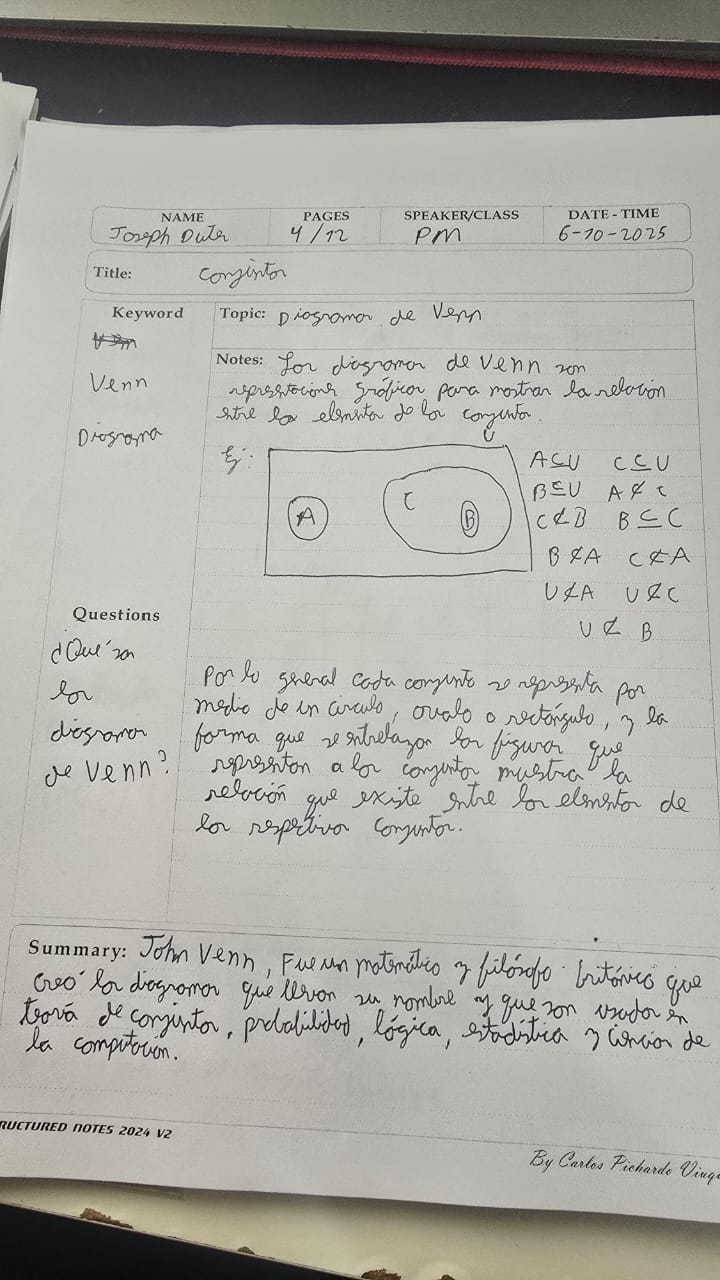 NAME PAGES SPEAKER/CLASS DATE - TIME
Joseph 4/12 PM 6-10-2025
Title: Conjuntos
Keyword
Venn
Diagrama
Topic: Diagramas de Venn
Notes: Los diagramas de Venn son
representaciones gráficas para mostrar la relación
entre los elementos de los conjuntos.
Ej:
U
A
C
B
A⊆U C⊆U
B⊆U A⊄C
C⊄B B⊆C
B⊄A C⊄A
U⊄A U⊄C
U⊄B
Questions
¿Qué son
los
diagramas
de Venn?
Por lo general cada conjunto se representa por
medio de un circulo, ovalo o rectángulo, y la
forma que se entrelazan las figuras que
representan a los conjuntos muestra la
relación que existe entre los elementos de
los respetivos conjuntos.
Summary: John Venn, Fue un matemático y filósofo británico que
creó los diagramas que llevan su nombre y que son usados en
teoría de conjuntos, probabilidad, lógica, estadística y ciencias de
la computación.
RUCTURED NOTES 2024 V2
By Carlos Pichardo